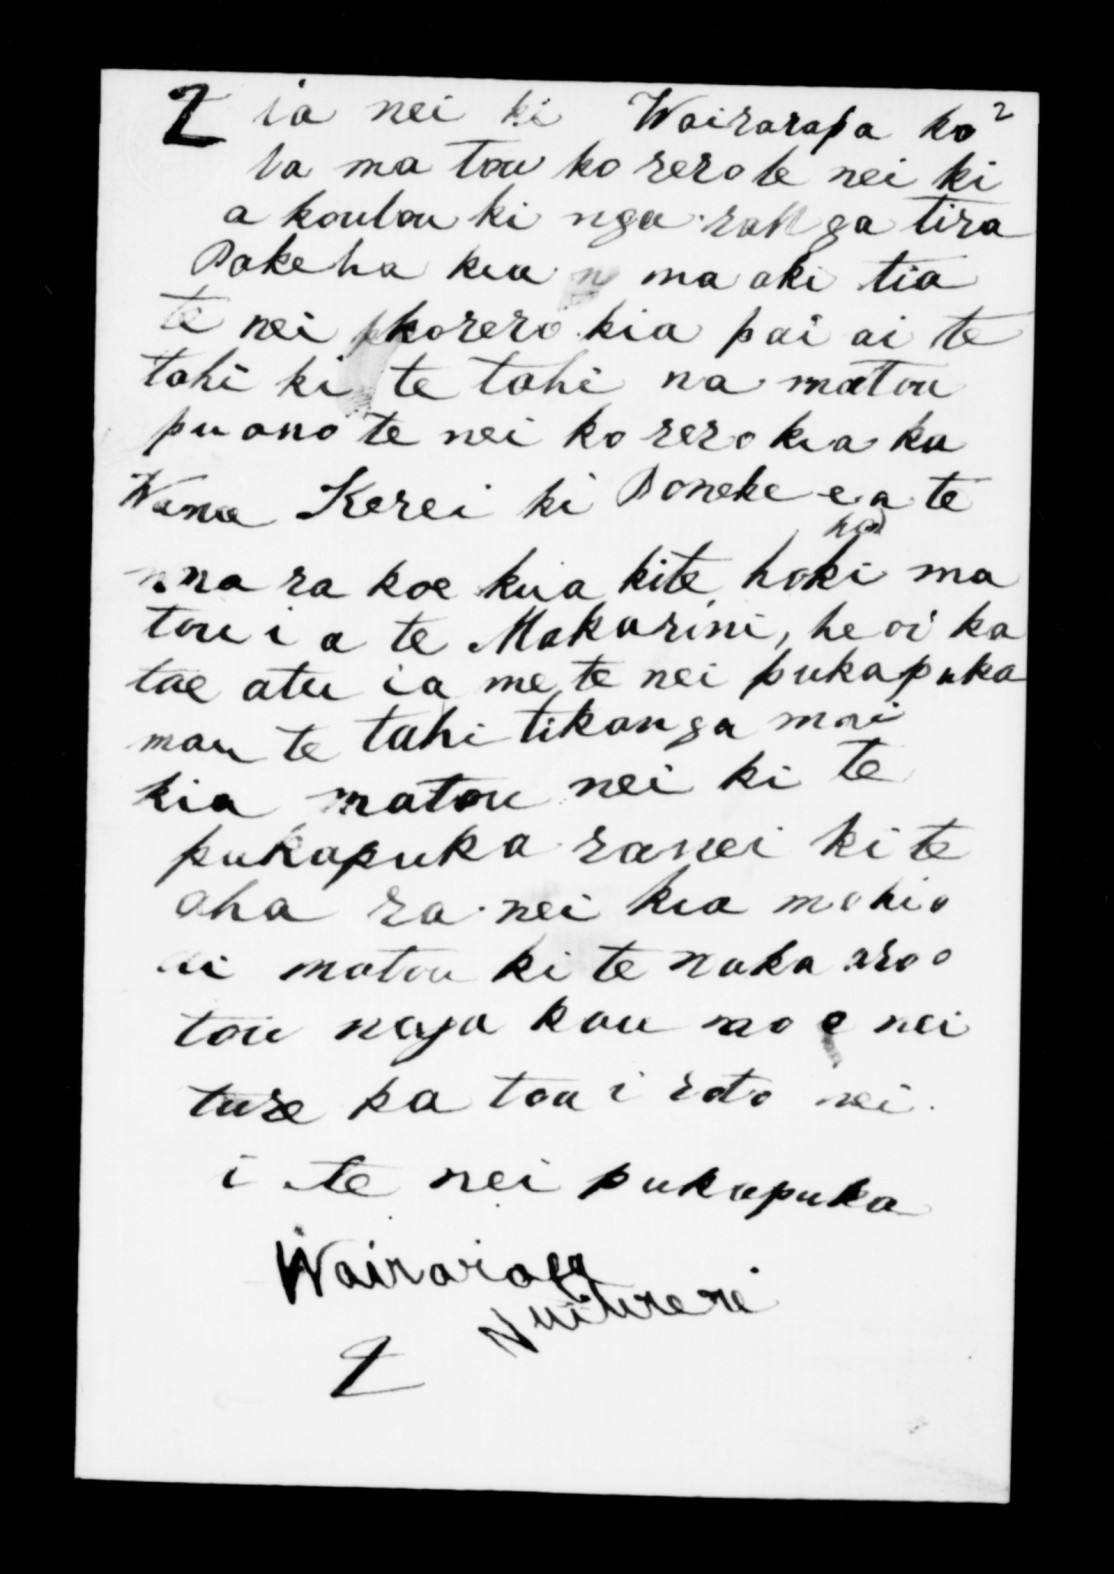 2 ia nei ki Wairarapa ko 2
ta ma tou ko rero te nei ki
a koutou ki nga ranga tira
Pakeha kia ma aki tia
te nei korero kia pai ai te
tahi ki te tahi na matou
pu ano te nei ko rero kia ka
Wana Kerei ki Poneke e a te
hoa
na ra koe kua kite hoki ma
tou i a te Makarini, he oi ka
tae atu ia me te nei pukapuka
mau te tahi tikanga mai
kia matou nei ki te
pukapuka ranei ki te
aha ra nei kia mohio
ai matou ki te naka aro o
tou ngakau mo e nei
ture ka tou i roto nei
i te nei pukapuka
Wairarapa
2